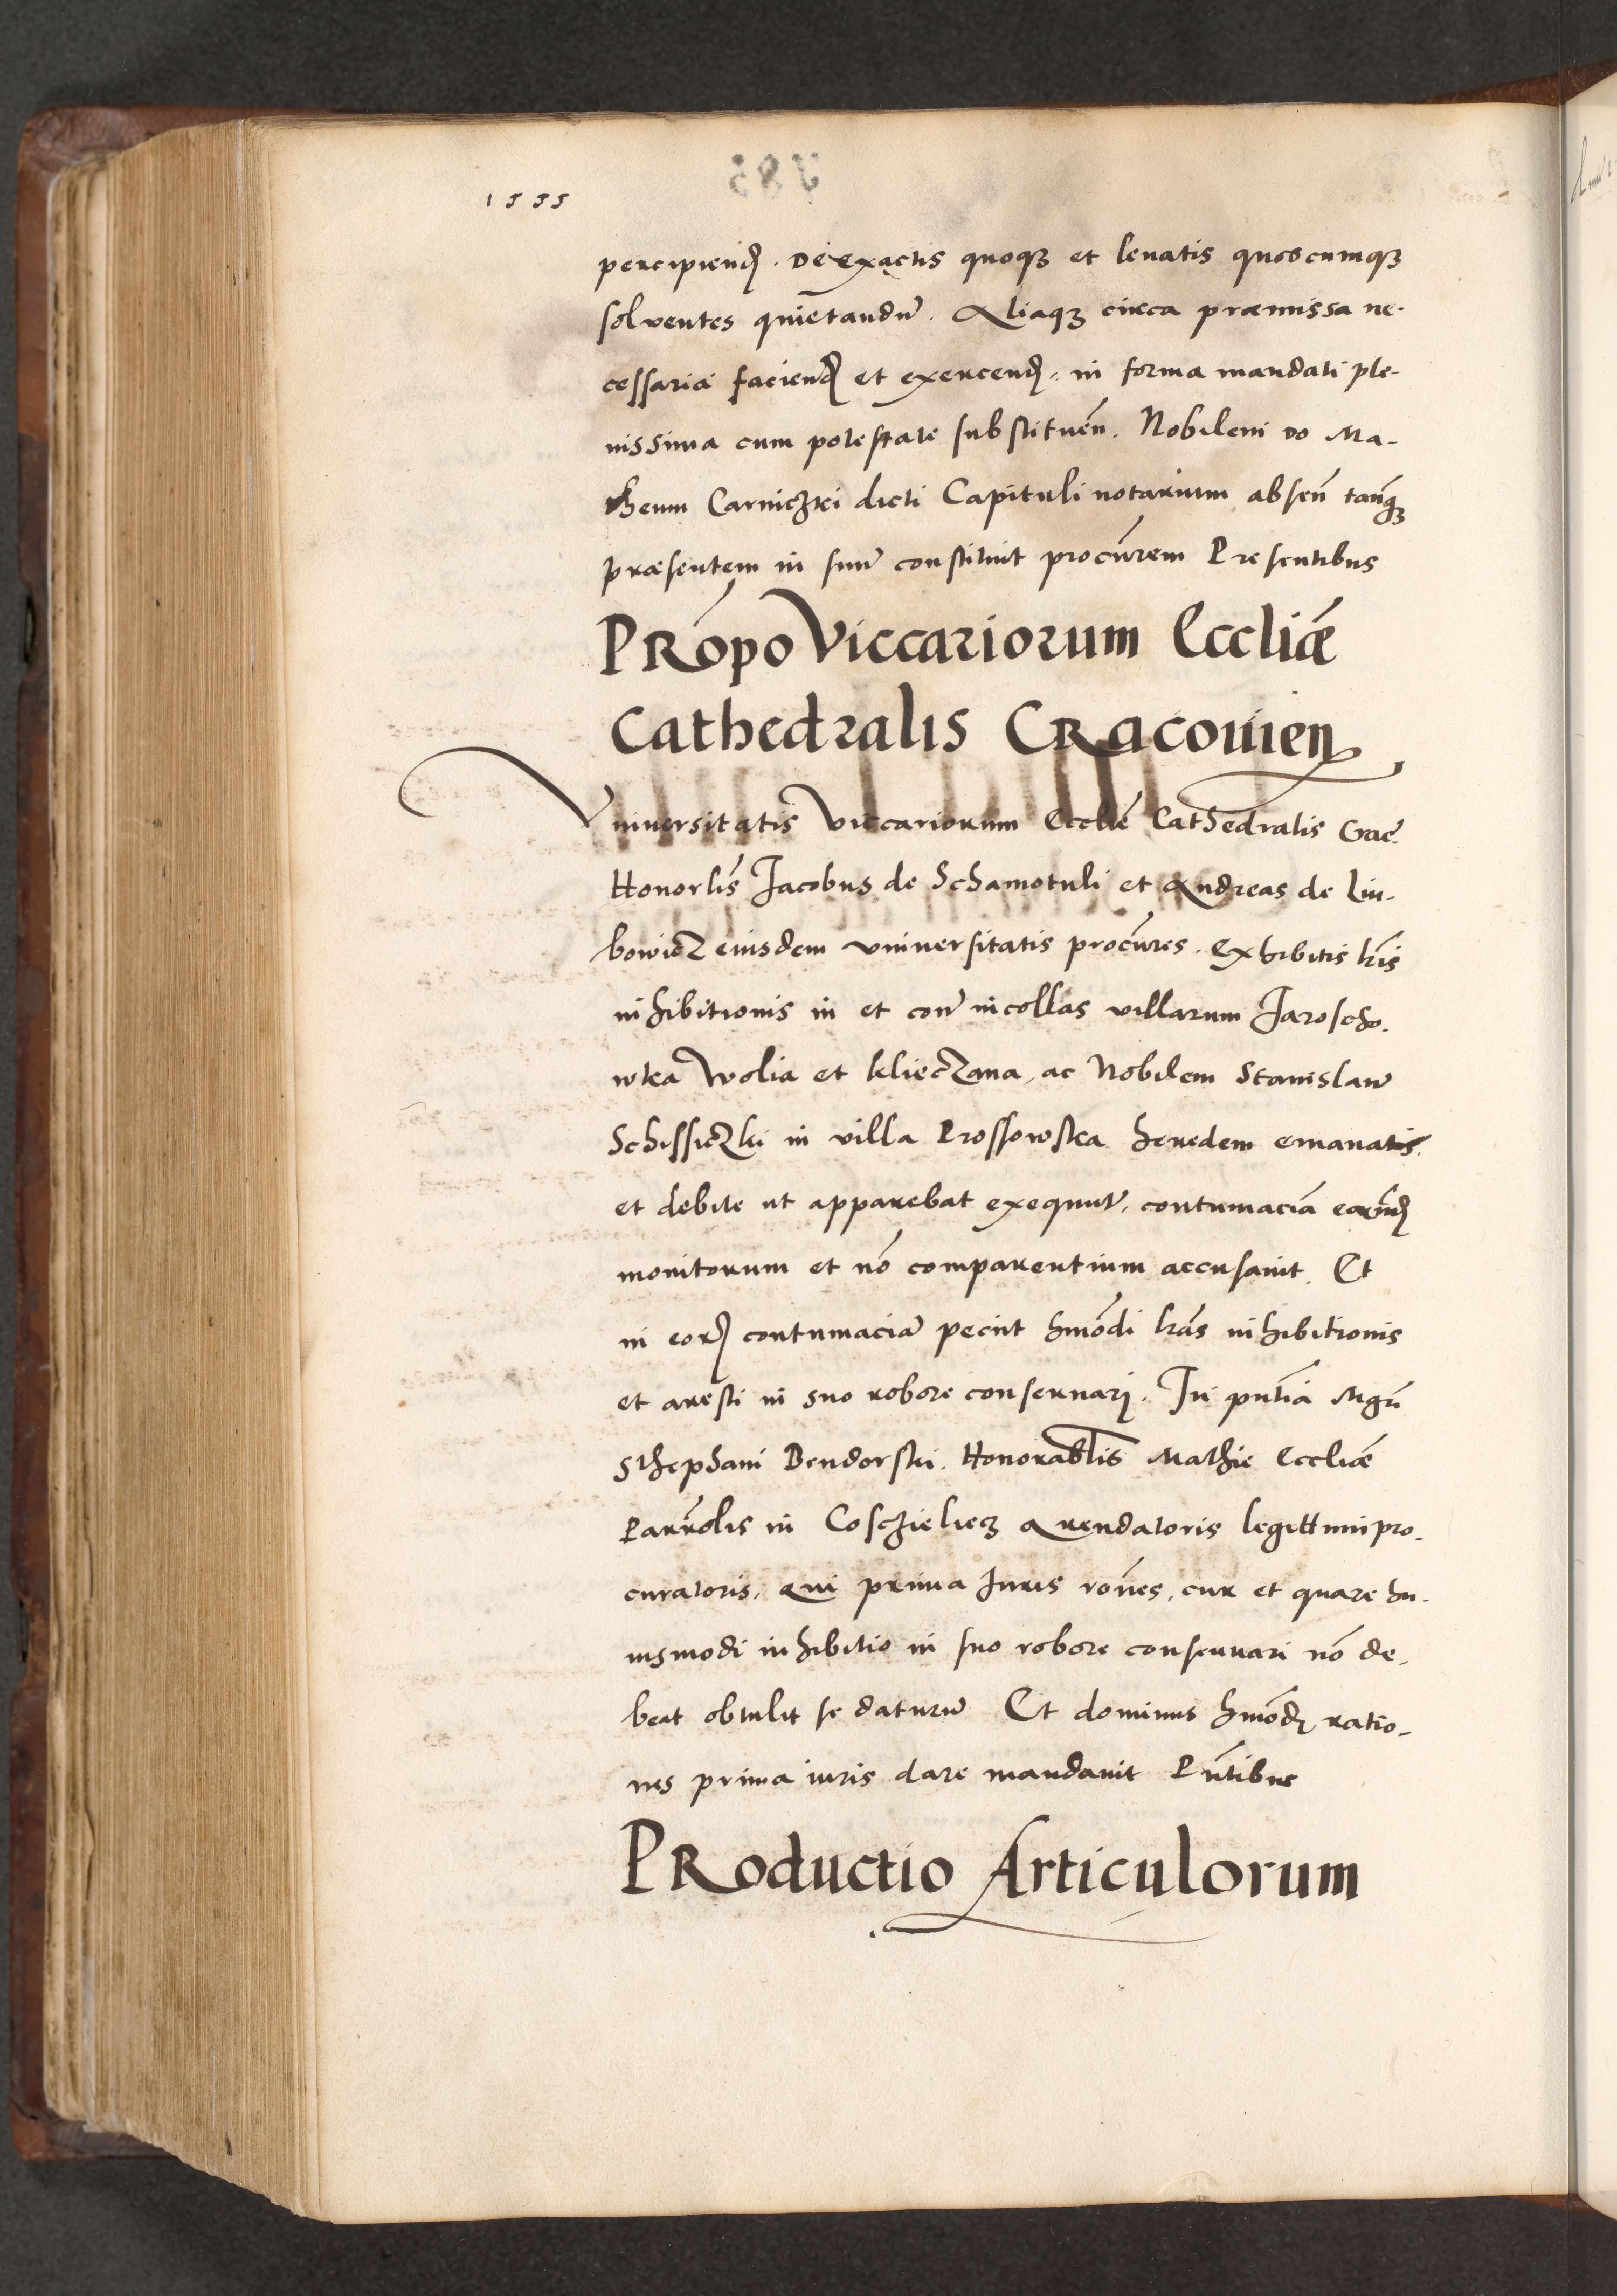 1555
percipiend. De exactis quoqꝫ et leuatis quoscumqꝫ
soluentes quietandū. Aliaqꝫ circa præmissa ne-
cessaria faciend et exercend. in forma mandati ple-
nissima cum potestate substituen̄. Nobilem do Ma-
theum Carniczki dicti Capituli notarium absen̄ tanqꝫ
præsentem in suū constituit procūrem Presentibus
PRōpo Viccariorum Eccliæ
Cathedralis CRacouien
Vniuersitatis Viccariorum Eccliē Cathedralis Crac̄.
Honorlis̄ Jacobus de Schamotuli et Andreas de Liu-
bowicz eiusdem vniuersitatis procūres. Exhibitis lr̄is
inhibitionis in et con̄ incollas villarum Jarosscho-
wka Wolia et Klieczana, ac Nobilem Stanislaū
Schissiczki in villa Brossowska heredem emanatis.
et debite ut apparebat exequut̄, contumaciā eorund
monitorum et nō comparentium accusauit. Et
in eorꝫ contumaciā peciit hmōdi lr̄as inhibitionis
et aresti in suo robore conseruari. In pn̄tia Mgr̄i
Sthephani Bendorski. Honorabl̄is Mathie Eccliæ
Parr̄olis in Cosczieliecz Arendatoris legittimi pro-
curatoris, qui prima Juris ron̄es, cur et quare hu-
iusmodi inhibitio in suo robore conseruari nō de-
beat obtulit se daturū Et dominus hmōdi ratio-
nes prima iuris dare mandauit Pn̄tibus
PRoductio Articulorum